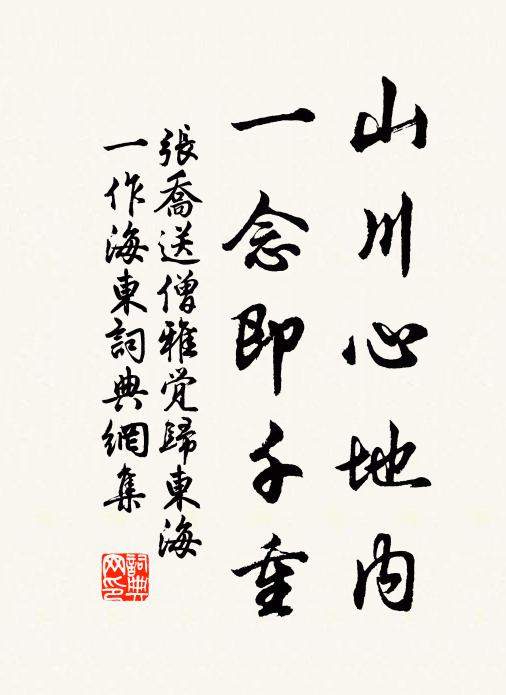 山川心地内
一念即千重
張喬送僧雅覚歸東海
一作海東詞典網集
詞典
网印